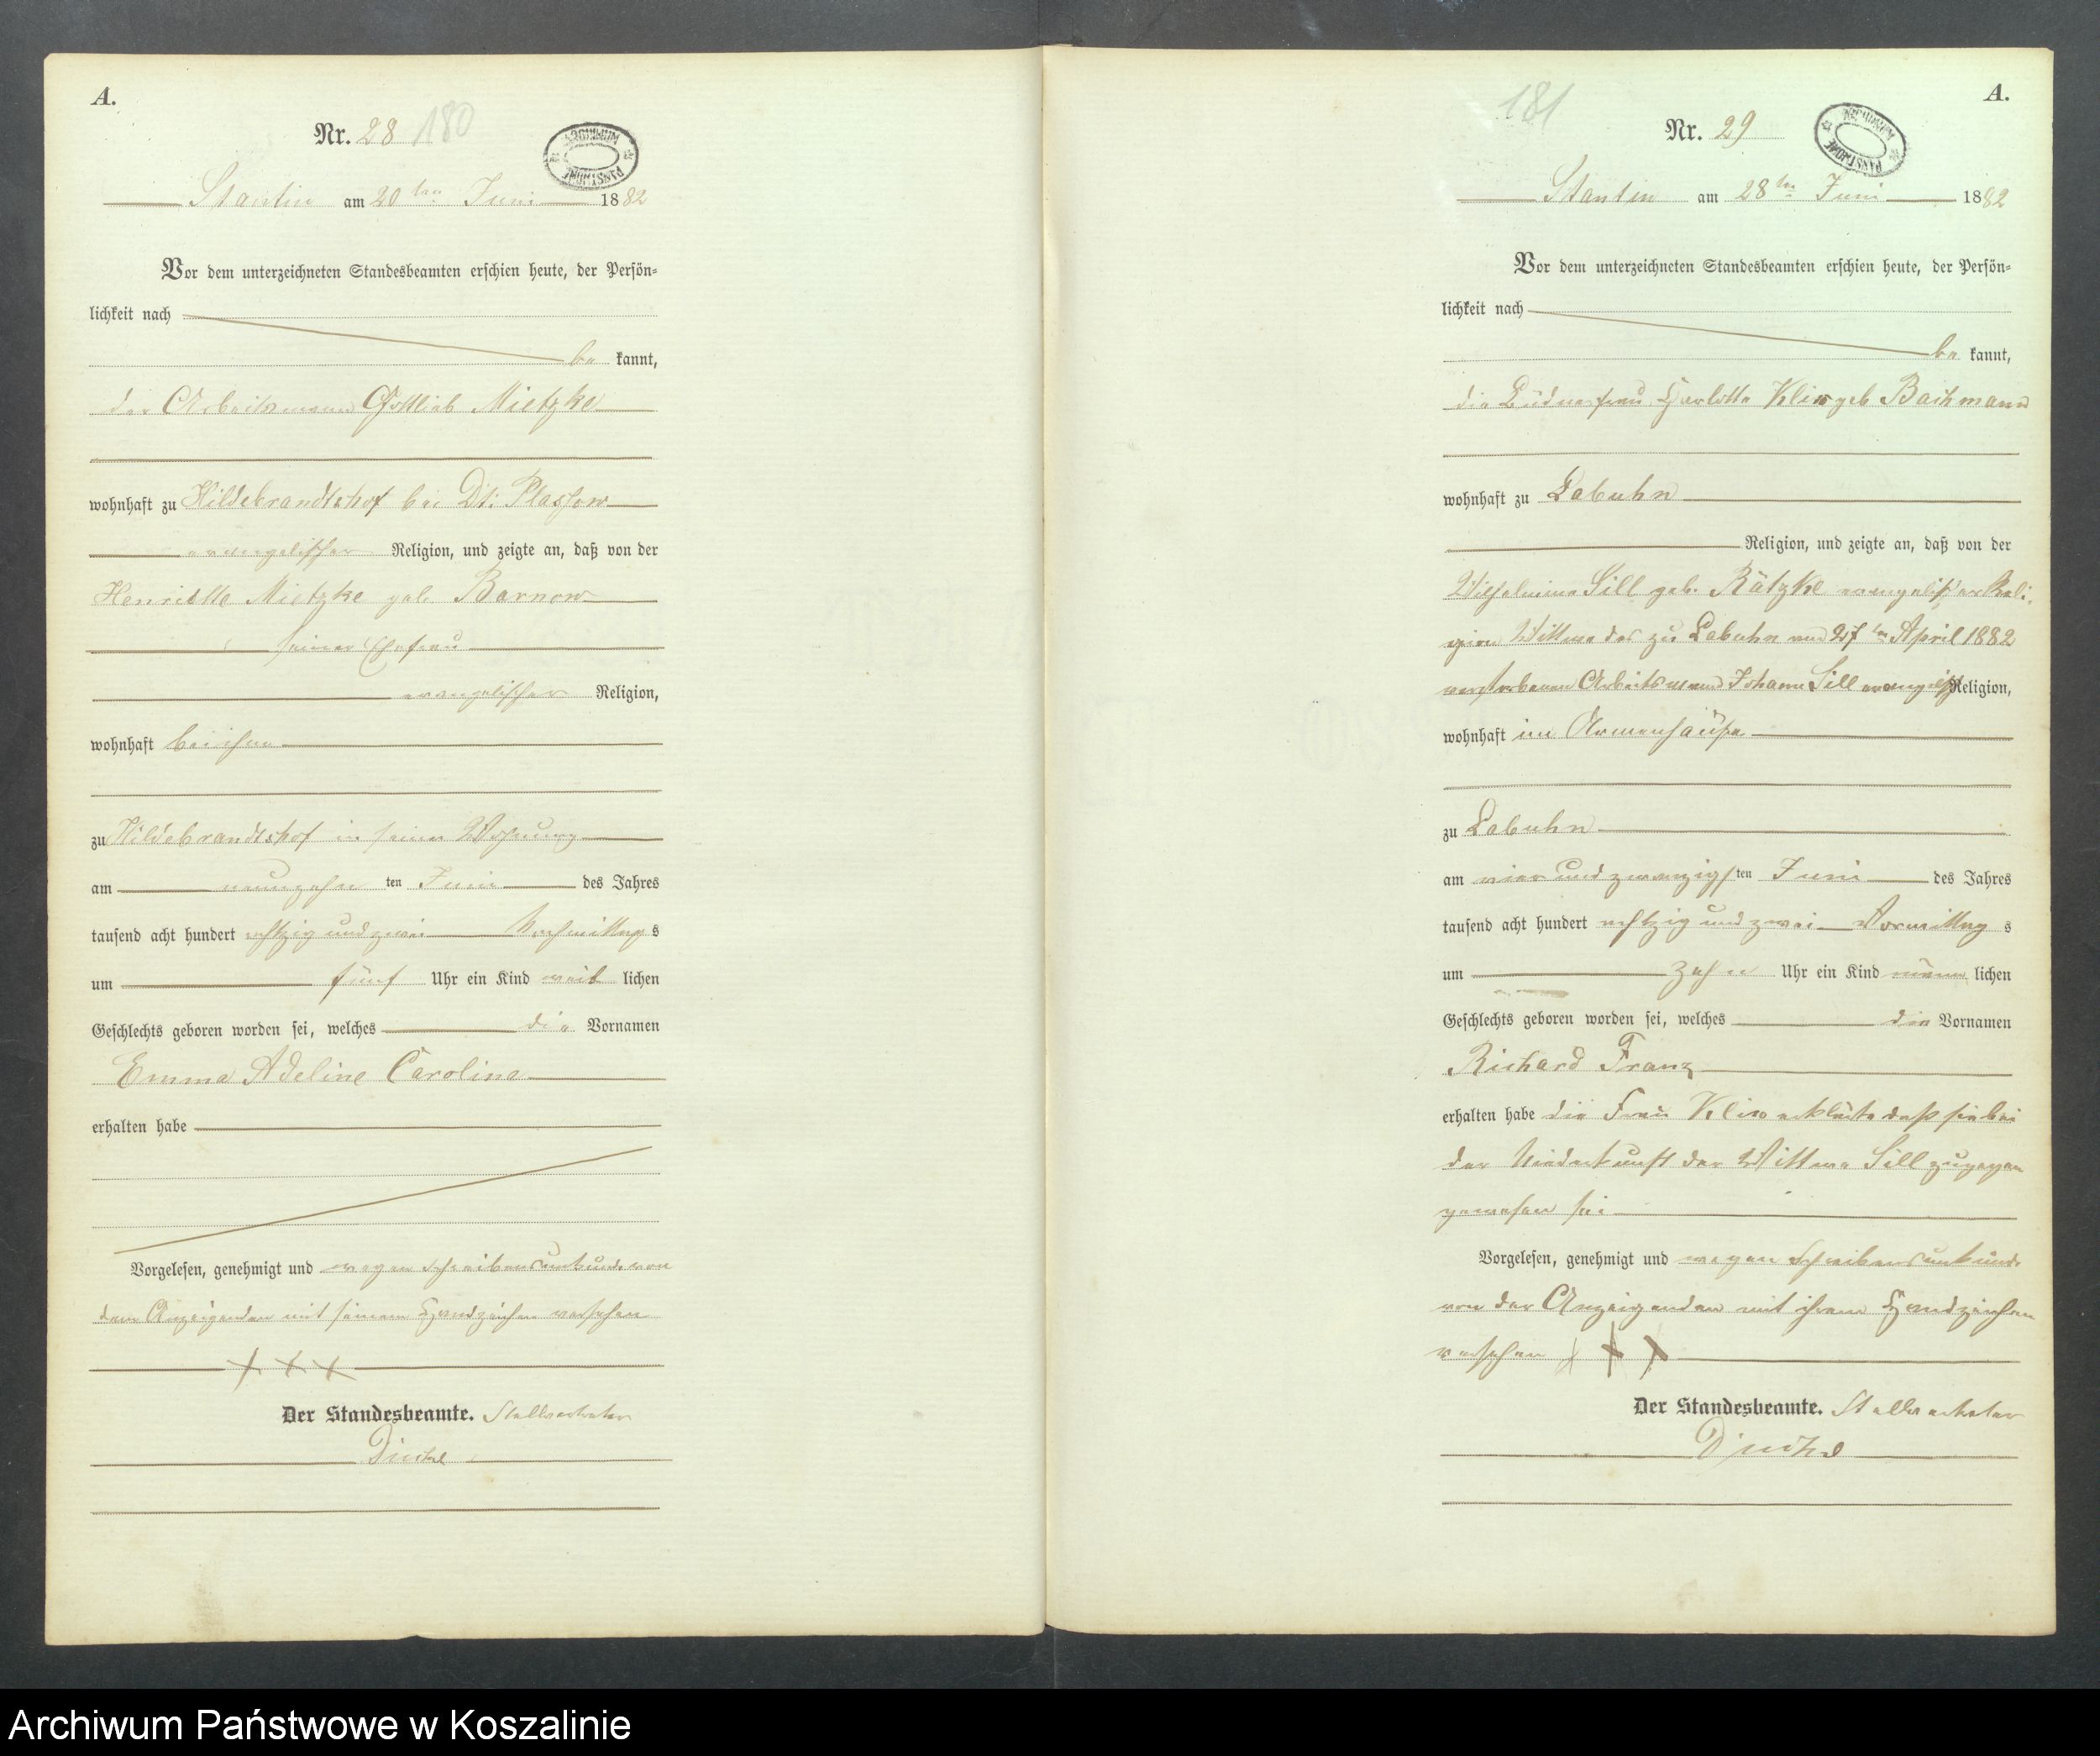 A.
Nr. 28 180
ARCHIWUM PAŃSTWOWE
Stantin am 20 ten Juni 1882
Vor dem unterzeichneten Standesbeamten erschien heute, der Persön=
lichkeit nach
be kannt,
der Arbeitsmann Gottlieb Mietzke
wohnhaft zu Hildebrandtshof bei Dt: Plassow
evangelischer Religion, und zeigte an, daß von der
Henriette Mietzke geb. Barnow
seiner Ehefrau
evangelischer Religion,
wohnhaft bei ihm
zu Hildebrandtshof in seiner Wohnung
am neunzehn ten Juni des Jahres
tausend acht hundert achtzig und zwei Nachmittags
um fünf Uhr ein Kind weib lichen
Geschlechts geboren worden sei, welches die Vornamen
Emma Adeline Caroline
erhalten habe
Vorgelesen, genehmigt und wegen Schreibensunkunde von
dem Anzeigenden mit seinem Handzeichen versehen
+ + +
Der Standesbeamte. Stellvertreter
A.
181
Nr. 29
ARCHIWUM PAŃSTWOWE
Stantin am 28 ten Juni 1882
Vor dem unterzeichneten Standesbeamten erschien heute, der Persön=
lichkeit nach
be kannt,
die Büdnerfrau Charlotte geb Bachmann
wohnhaft zu Labuhn
Religion, und zeigte an, daß von der
Wilhelmine Sill geb. Rätzke evangelischer Reli-
gion Wittwe des zu Labuhn am 27 ten April 1882
verstorbenen Arbeitsmann Johann Sill evangelisch Religion,
wohnhaft im Armenhause
zu Labuhn
am vier und zwanzigsten Juni des Jahres
tausend acht hundert achtzig und zwei Vormittags
um zehn Uhr ein Kind männ lichen
Geschlechts geboren worden sei, welches die Vornamen
Richard Franz
erhalten habe die Frau erklärte daß sie bei
der Niederkunft der Wittwe Sill zugegen
gewesen sei
Vorgelesen, genehmigt und wegen Schreibensunkunde
von der Anzeigenden mit ihrem Handzeichen
versehen + + +
Der Standesbeamte. Stellvertreter
Archiwum Państwowe w Koszalinie